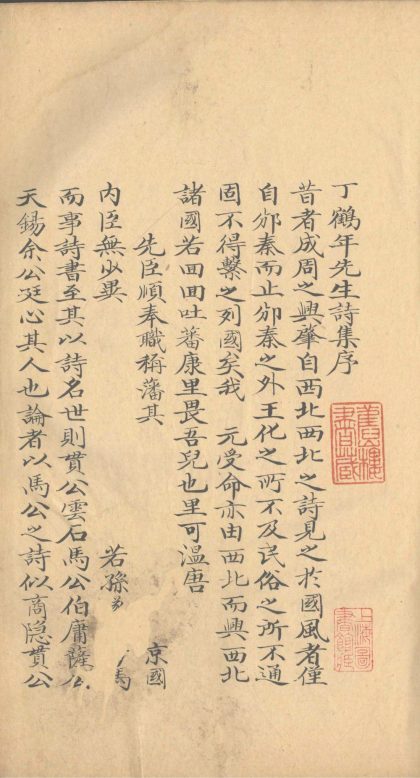 丁鶴年先生詩集序
昔者成周之興肇自西北西北之詩見之於國風者僅
自邠秦而止邠秦之外王化之所不及民俗之所不通
固不得繫之列國矣我　元受命亦由西北而興西北
諸國若回回吐蕃康里畏吾兒也里可溫唐
先臣順奉職稱藩其　京國
内臣無少異　若孫　馬
而事詩書至其以詩名世則貫公雲石馬公伯庸薩公
天錫余公廷心其人也論者以馬公之詩似商隐貫公
上海圖書館藏